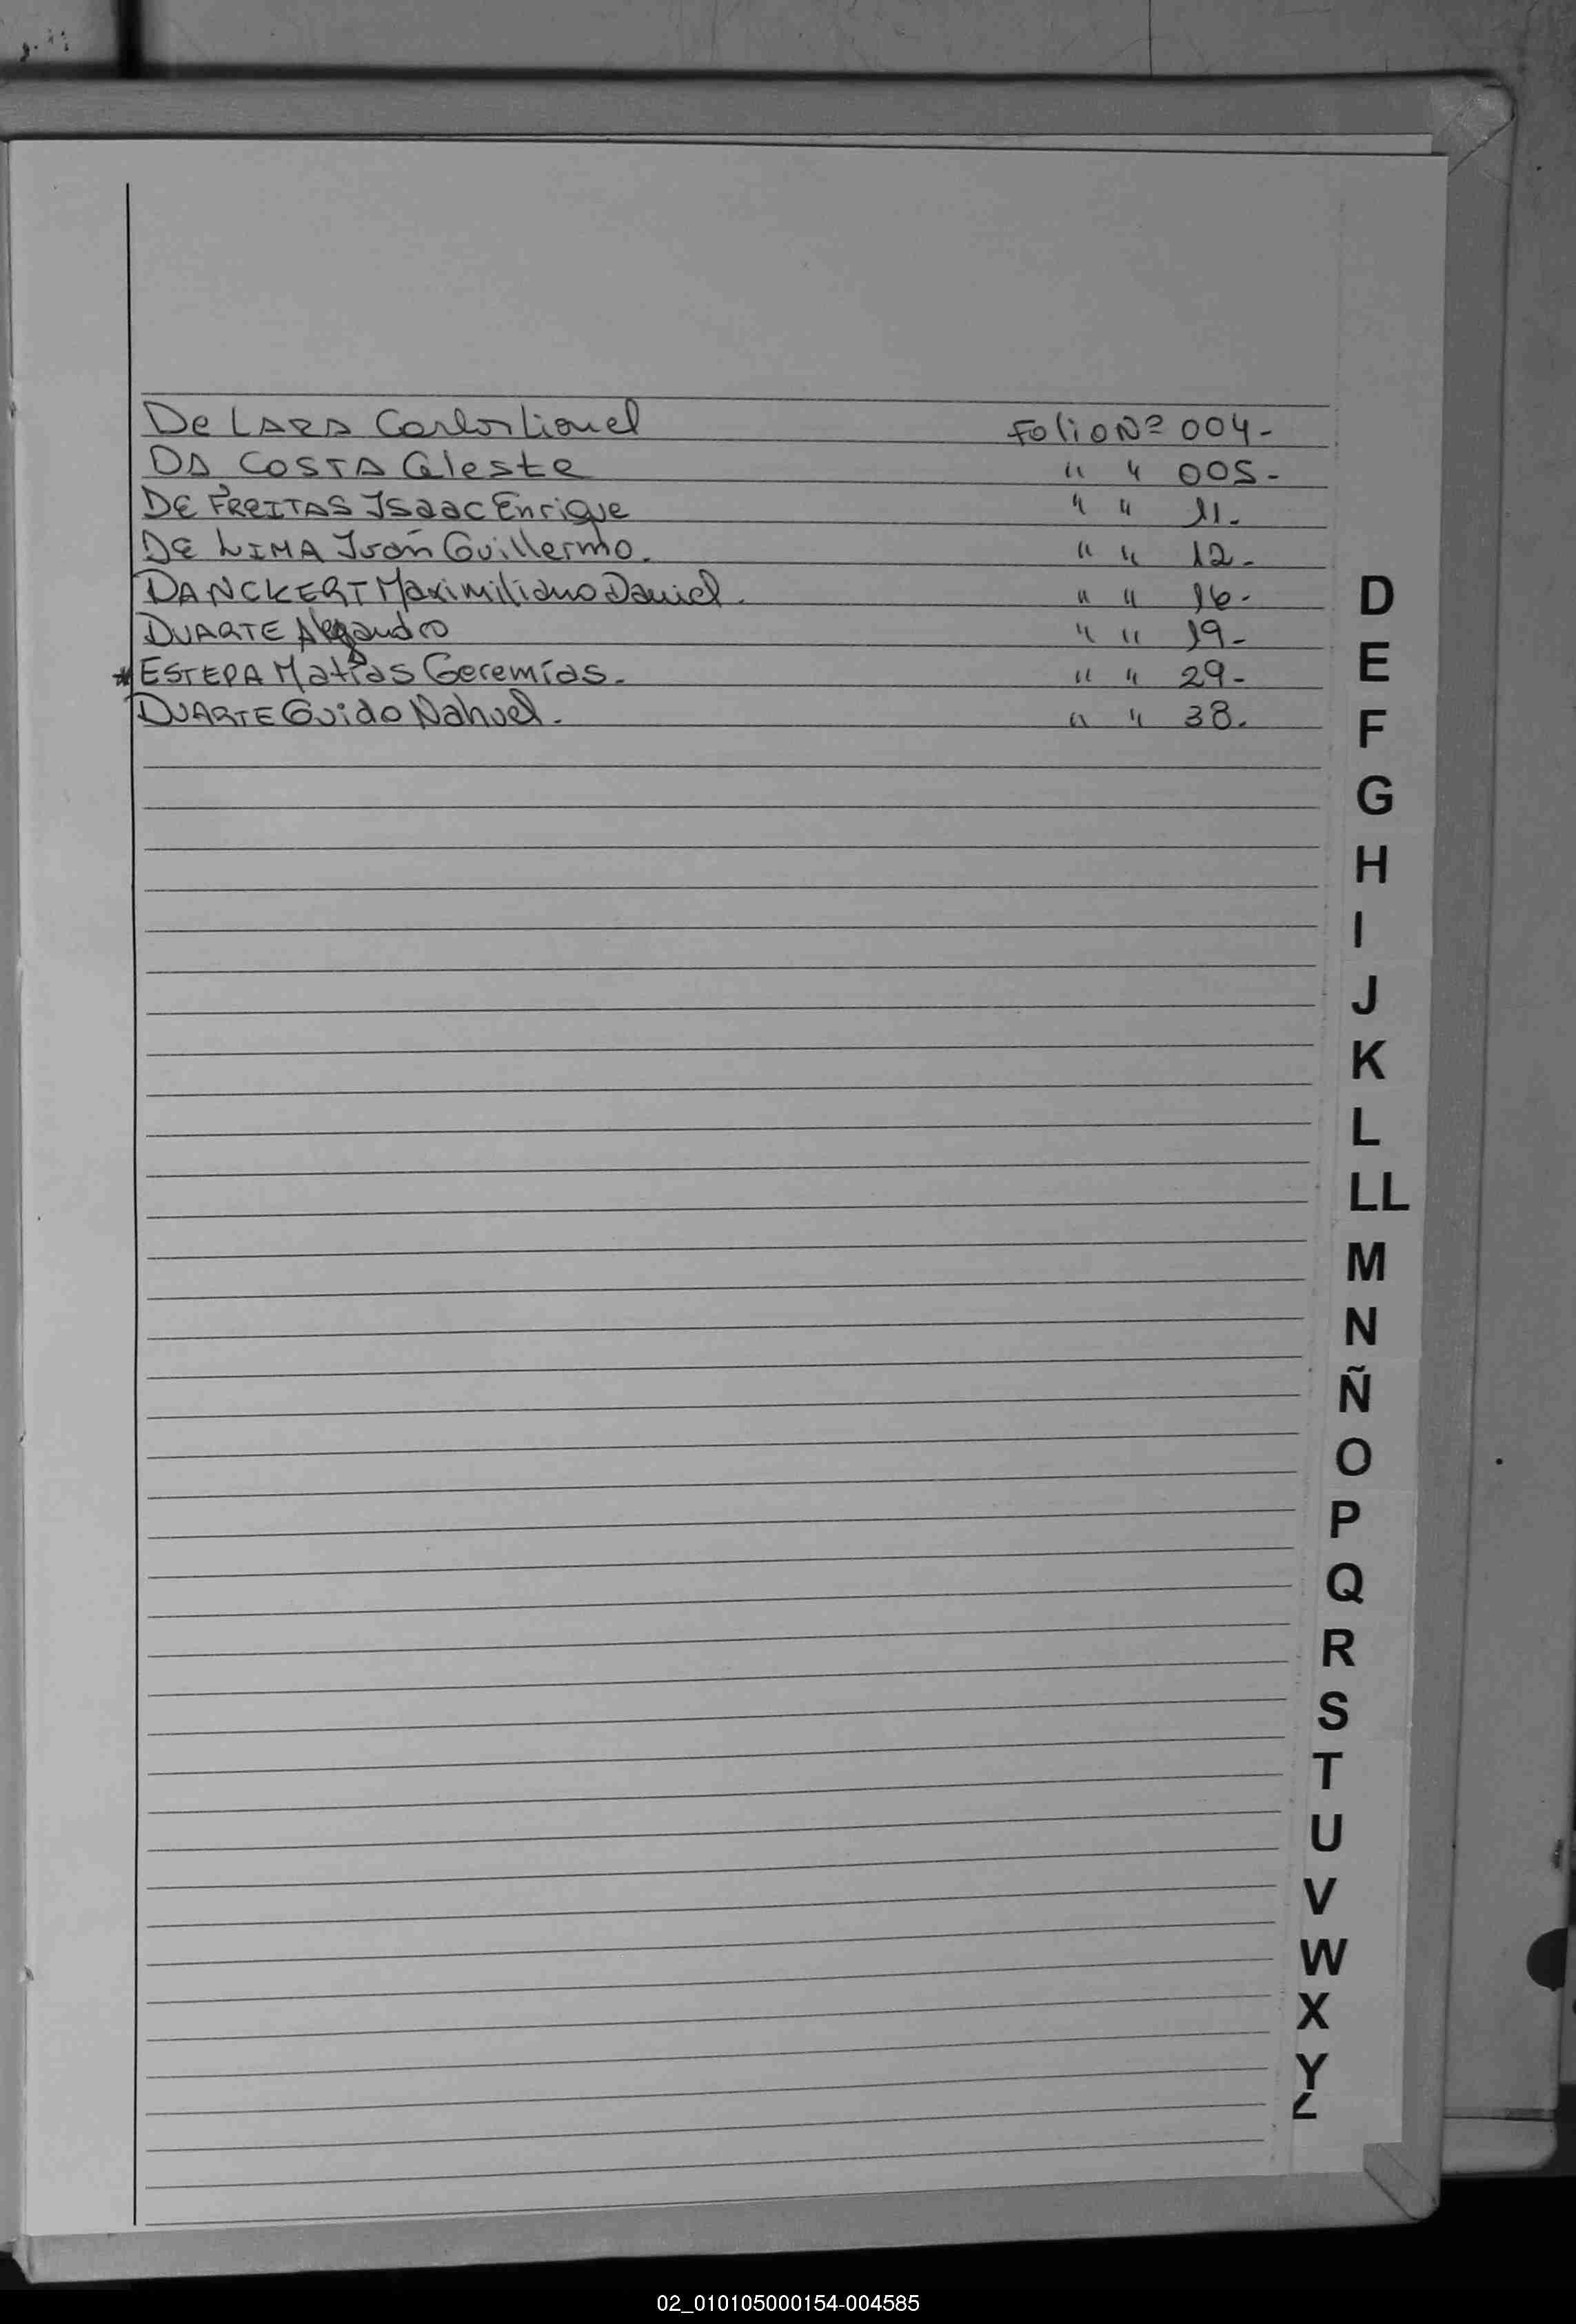 De LARA Carlos Lionel Folio Nº 004-
DA COSTA Celeste " " 005-
DE FREITAS Isaac Enrique " " 11.
DE LIMA Iván Guillermo. " " 12-
DANCKERT Maximiliano Daniel. " " 16-
DUARTE Alejandro " " 19-
*ESTEPA Matías Geremías. " " 29-
DUARTE Guido Nahuel. " " 38.
D
E
F
G
H
I
J
K
L
LL
M
N
Ñ
O
P
Q
R
S
T
U
V
W
X
Y
Z
02_010105000154-004585